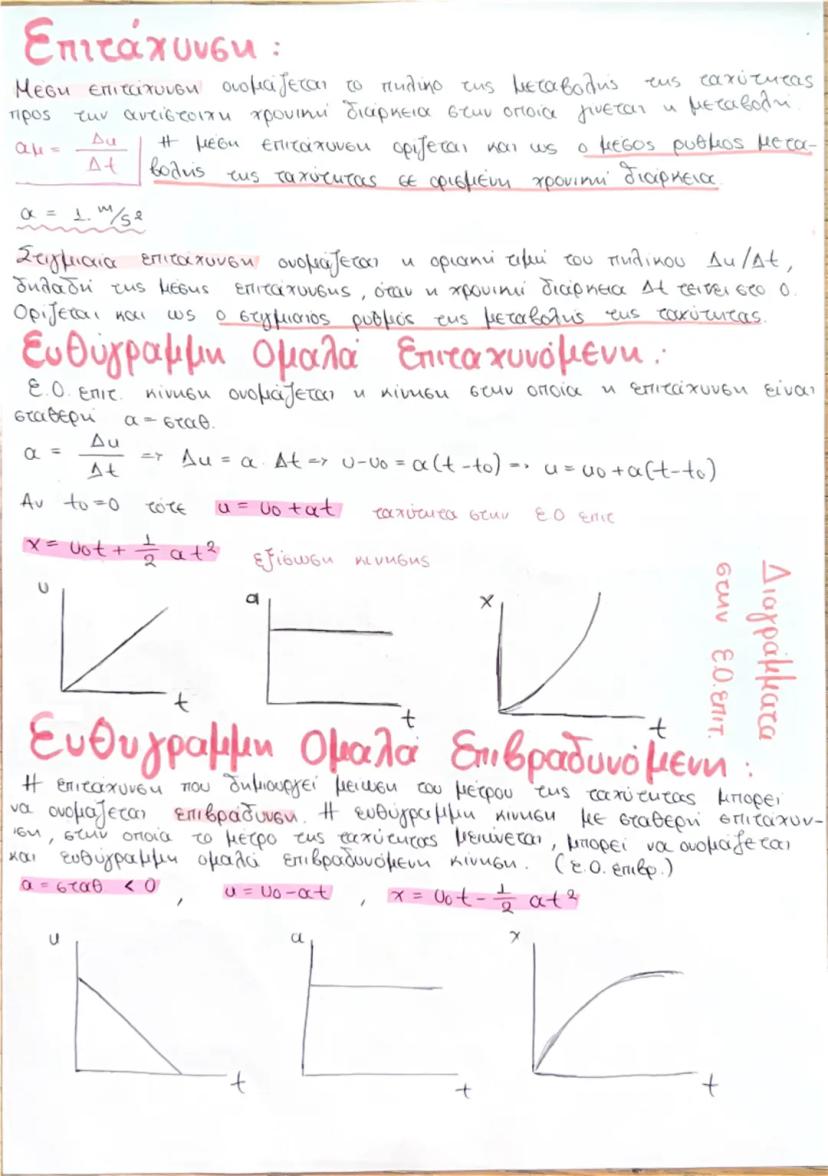 Επιτάχυνση:
Μέση επιτάχυνση ονομάζεται το πηλίκο της μεταβολής της ταχύτητας
προς την αντίστοιχη χρονική διάρκεια στην οποία γίνεται η μεταβολή.
αμ = Δυ/Δt Η μέση επιτάχυνση ορίζεται και ως ο μέσος ρυθμος μετα-
βολής της ταχύτητας σε ορισμένη χρονική διάρκεια.
α = 1. m/s²
Στιγμιαία επιτάχυνση ονομάζεται η οριακή τιμή του πηλίκου Δυ/Δt,
δηλαδή της μέσης επιτάχυνσης, όταν η χρονική διάρκεια Δt τείνει στο 0.
Ορίζεται και ως ο στιγμιαίος ρυθμός της μεταβολής της ταχύτητας.
Ευθύγραμμη Ομαλά Επιταχυνόμενη:
Ε.Ο. επιτ. κίνηση ονομάζεται η κίνηση στην οποία η επιτάχυνση είναι
σταθερή α = σταθ.
α = Δυ/Δt => Δυ = α. Δt => υ-υ₀ = α(t-t₀) => υ = υ₀ + α(t-t₀)
Αν t₀=0 τότε υ = υ₀ + αt ταχύτητα στην ΕΟ επιτ
x = υ₀t + 1/2 αt² εξίσωση κίνησης
Διαγράμματα
στην Ε.Ο.επιτ.
υ t
α t
x t
Ευθυγραμμη Ομαλά Επιβραδυνόμενη:
Η επιτάχυνση που δημιουργεί μείωση του μέτρου της ταχύτητας μπορεί
να ονομάζεται επιβράδυνση. Η ευθύγραμμη κίνηση με σταθερή επιτάχυν-
ση, στην οποία το μέτρο της ταχύτητας μειώνεται, μπορεί να ονομάζεται
και ευθύγραμμη ομαλά επιβραδυνόμενη κίνηση. (Ε.Ο. επιβρ.)
α = σταθ < 0 , υ = υ₀-αt , x = υ₀t - 1/2 αt²
υ t
α t
x t